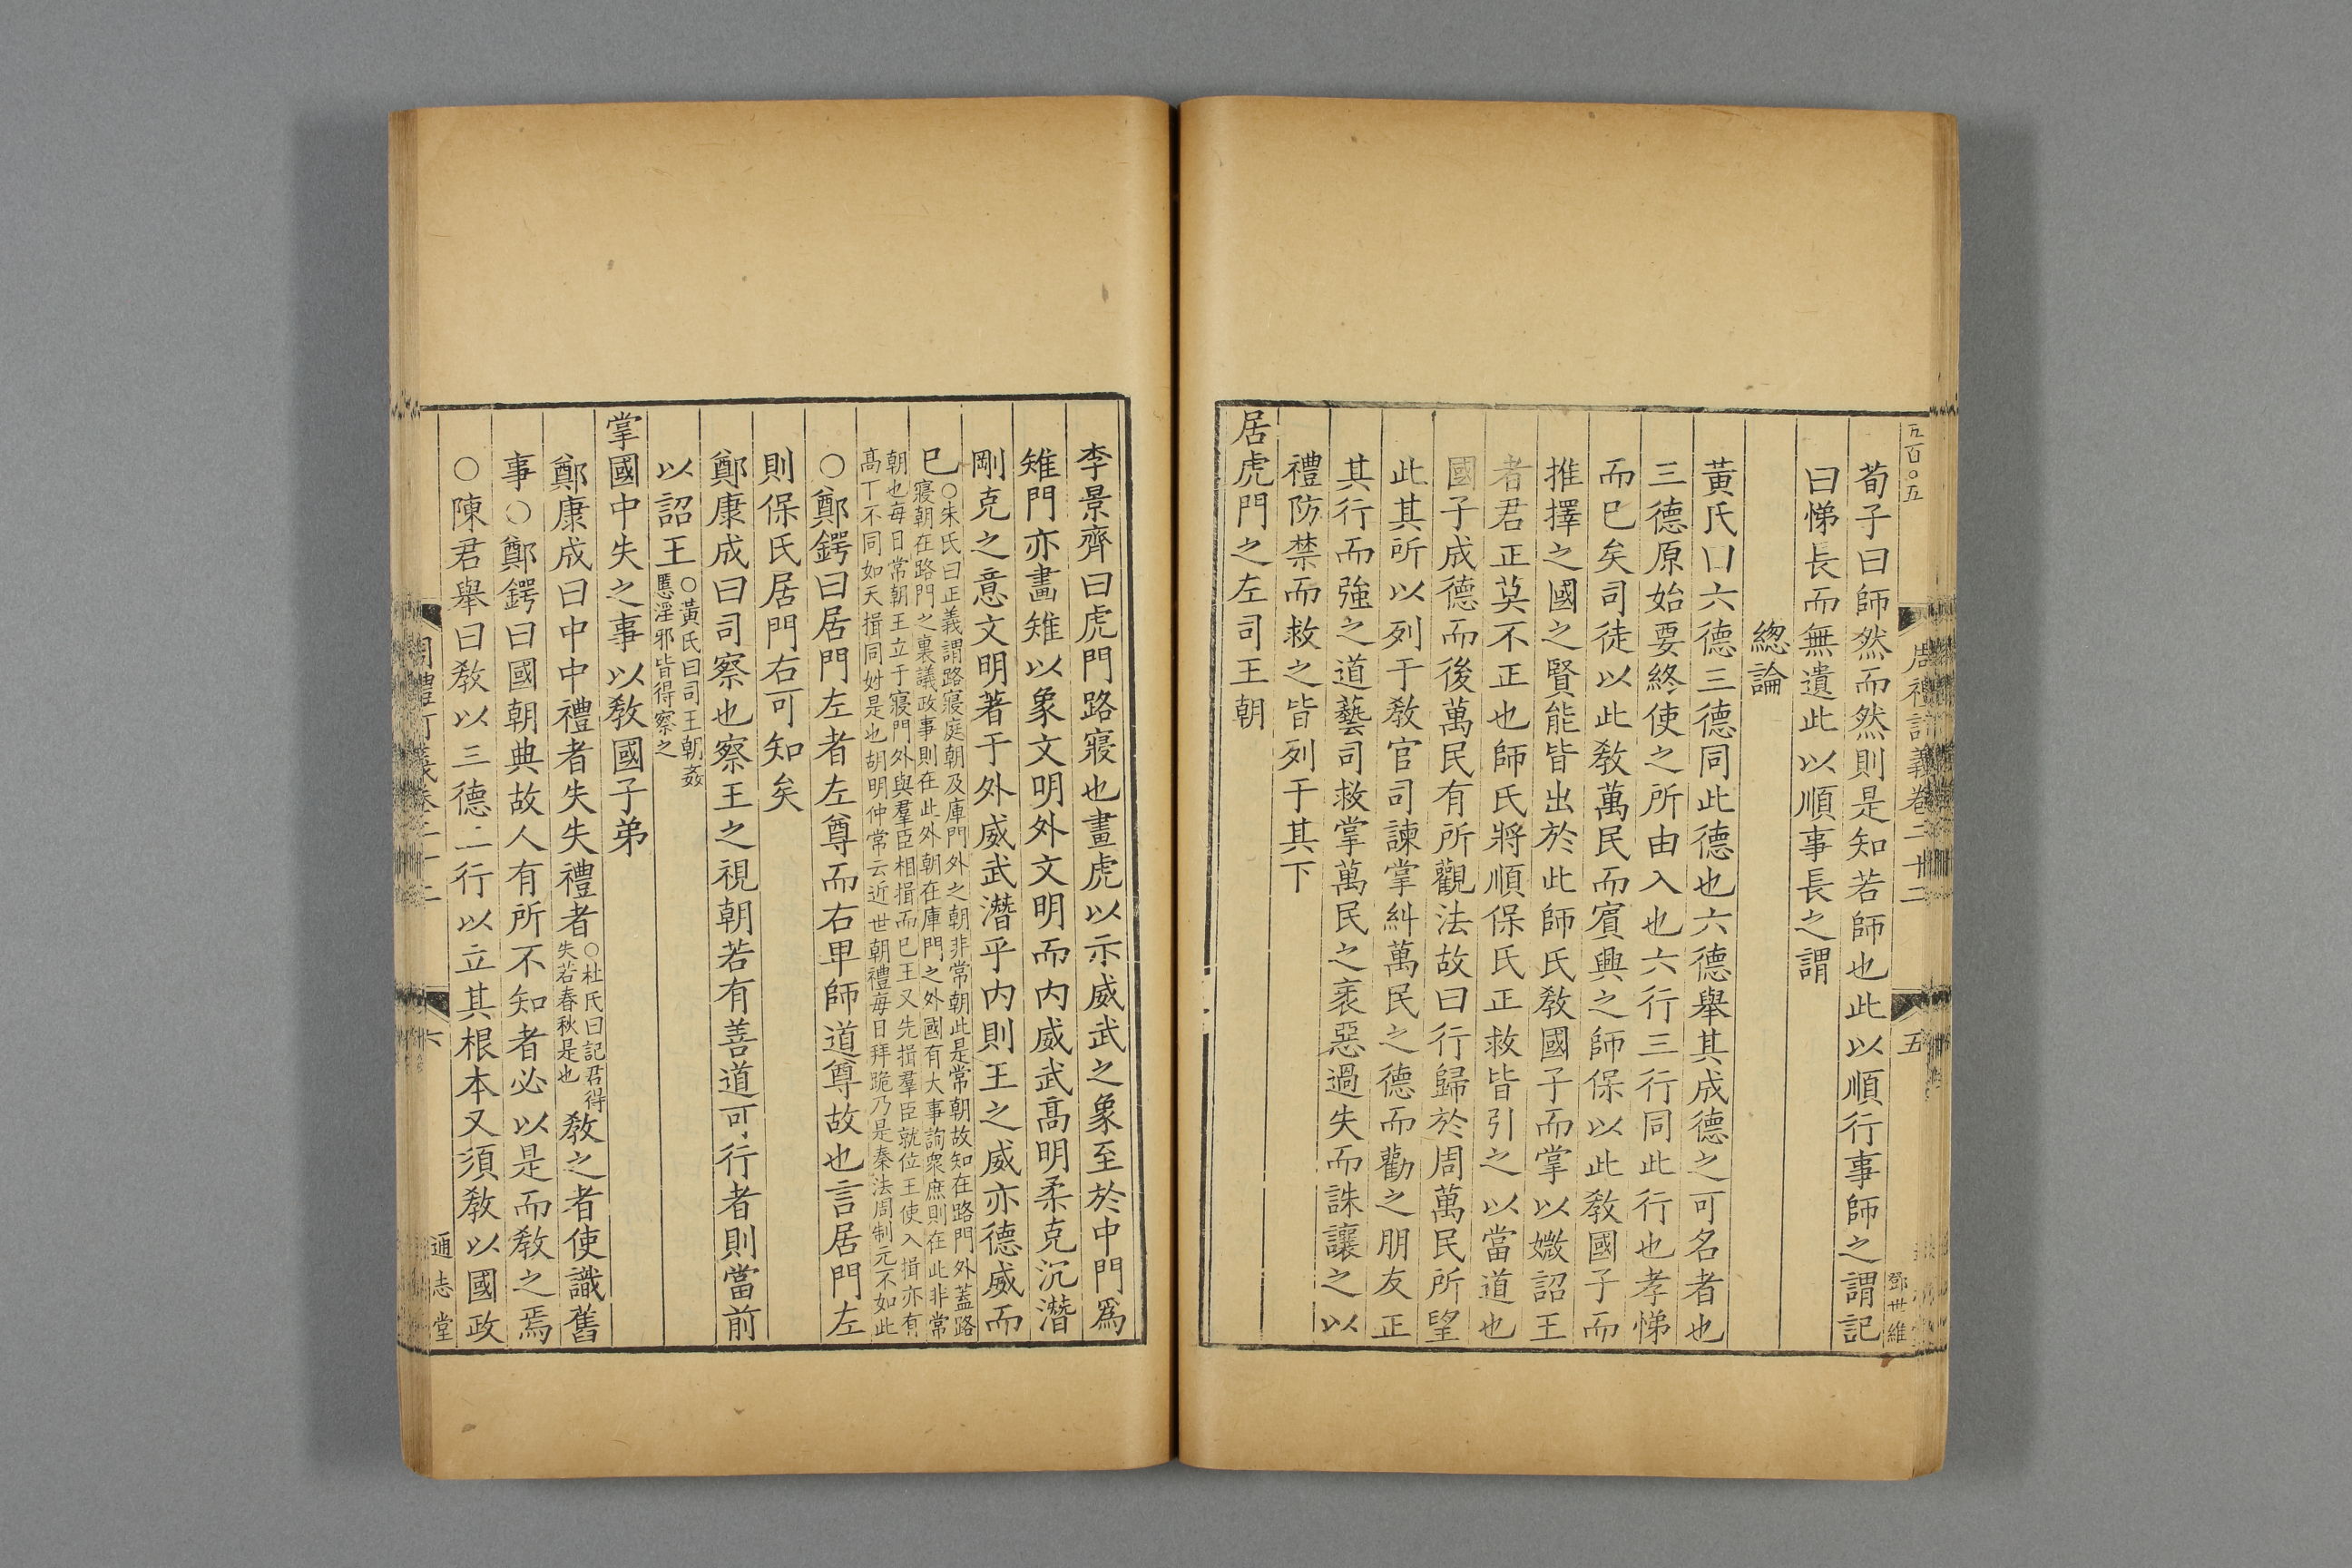 五百〇五
周禮訂義卷二十二
五
鄧世維
荀子曰師然而然則是知若師也此以順行事師之謂記
曰悌長而無遺此以順事長之謂
緫論
黃氏曰六德三德同此德也六德舉其成德之可名者也
三德原始要終使之所由入也六行三行同此行也孝悌
而已矣司徒以此敎萬民而賔興之師保以此敎國子而
推擇之國之賢能皆出於此師氏敎國子而掌以媺詔王
者君正莫不正也師氏將順保氏正救皆引之以當道也
國子成德而後萬民有所觀法故曰行歸於周萬民所望
此其所以列于敎官司諫掌糾萬民之德而勸之朋友正
其行而強之道藝司救掌萬民之衺惡過失而誅讓之以
禮防禁而救之皆列于其下
居虎門之左司王朝
李景齊曰虎門路寢也畫虎以示威武之象至於中門爲
雉門亦畫雉以象文明外文明而内威武髙明柔克沉潛
剛克之意文明著于外威武潛乎内則王之威亦德威而
已〇朱氏曰正義謂路寢庭朝及庫門外之朝非常朝此是常朝故知在路門外蓋路
寢朝在路門之裏議政事則在此外朝在庫門之外國有大事詢衆庶則在此非常
朝也每日常朝王立于寢門外與羣臣相揖而已王又先揖羣臣就位王使入揖亦有
髙丅不同如天揖同姓是也胡明仲常云近世朝禮每日拜跪乃是秦法周制元不如此
〇鄭鍔曰居門左者左尊而右卑師道尊故也言居門左
則保氏居門右可知矣
鄭康成曰司察也察王之視朝若有善道可行者則當前
以詔王〇黃氏曰司王朝姦
慝淫邪皆得察之
掌國中失之事以敎國子弟
鄭康成曰中中禮者失失禮者〇杜氏曰記君得
失若春秋是也敎之者使識舊
事〇鄭鍔曰國朝典故人有所不知者必以是而敎之焉
〇陳君舉曰敎以三德二行以立其根本又須敎以國政
周禮訂義卷二十二
六
通志堂